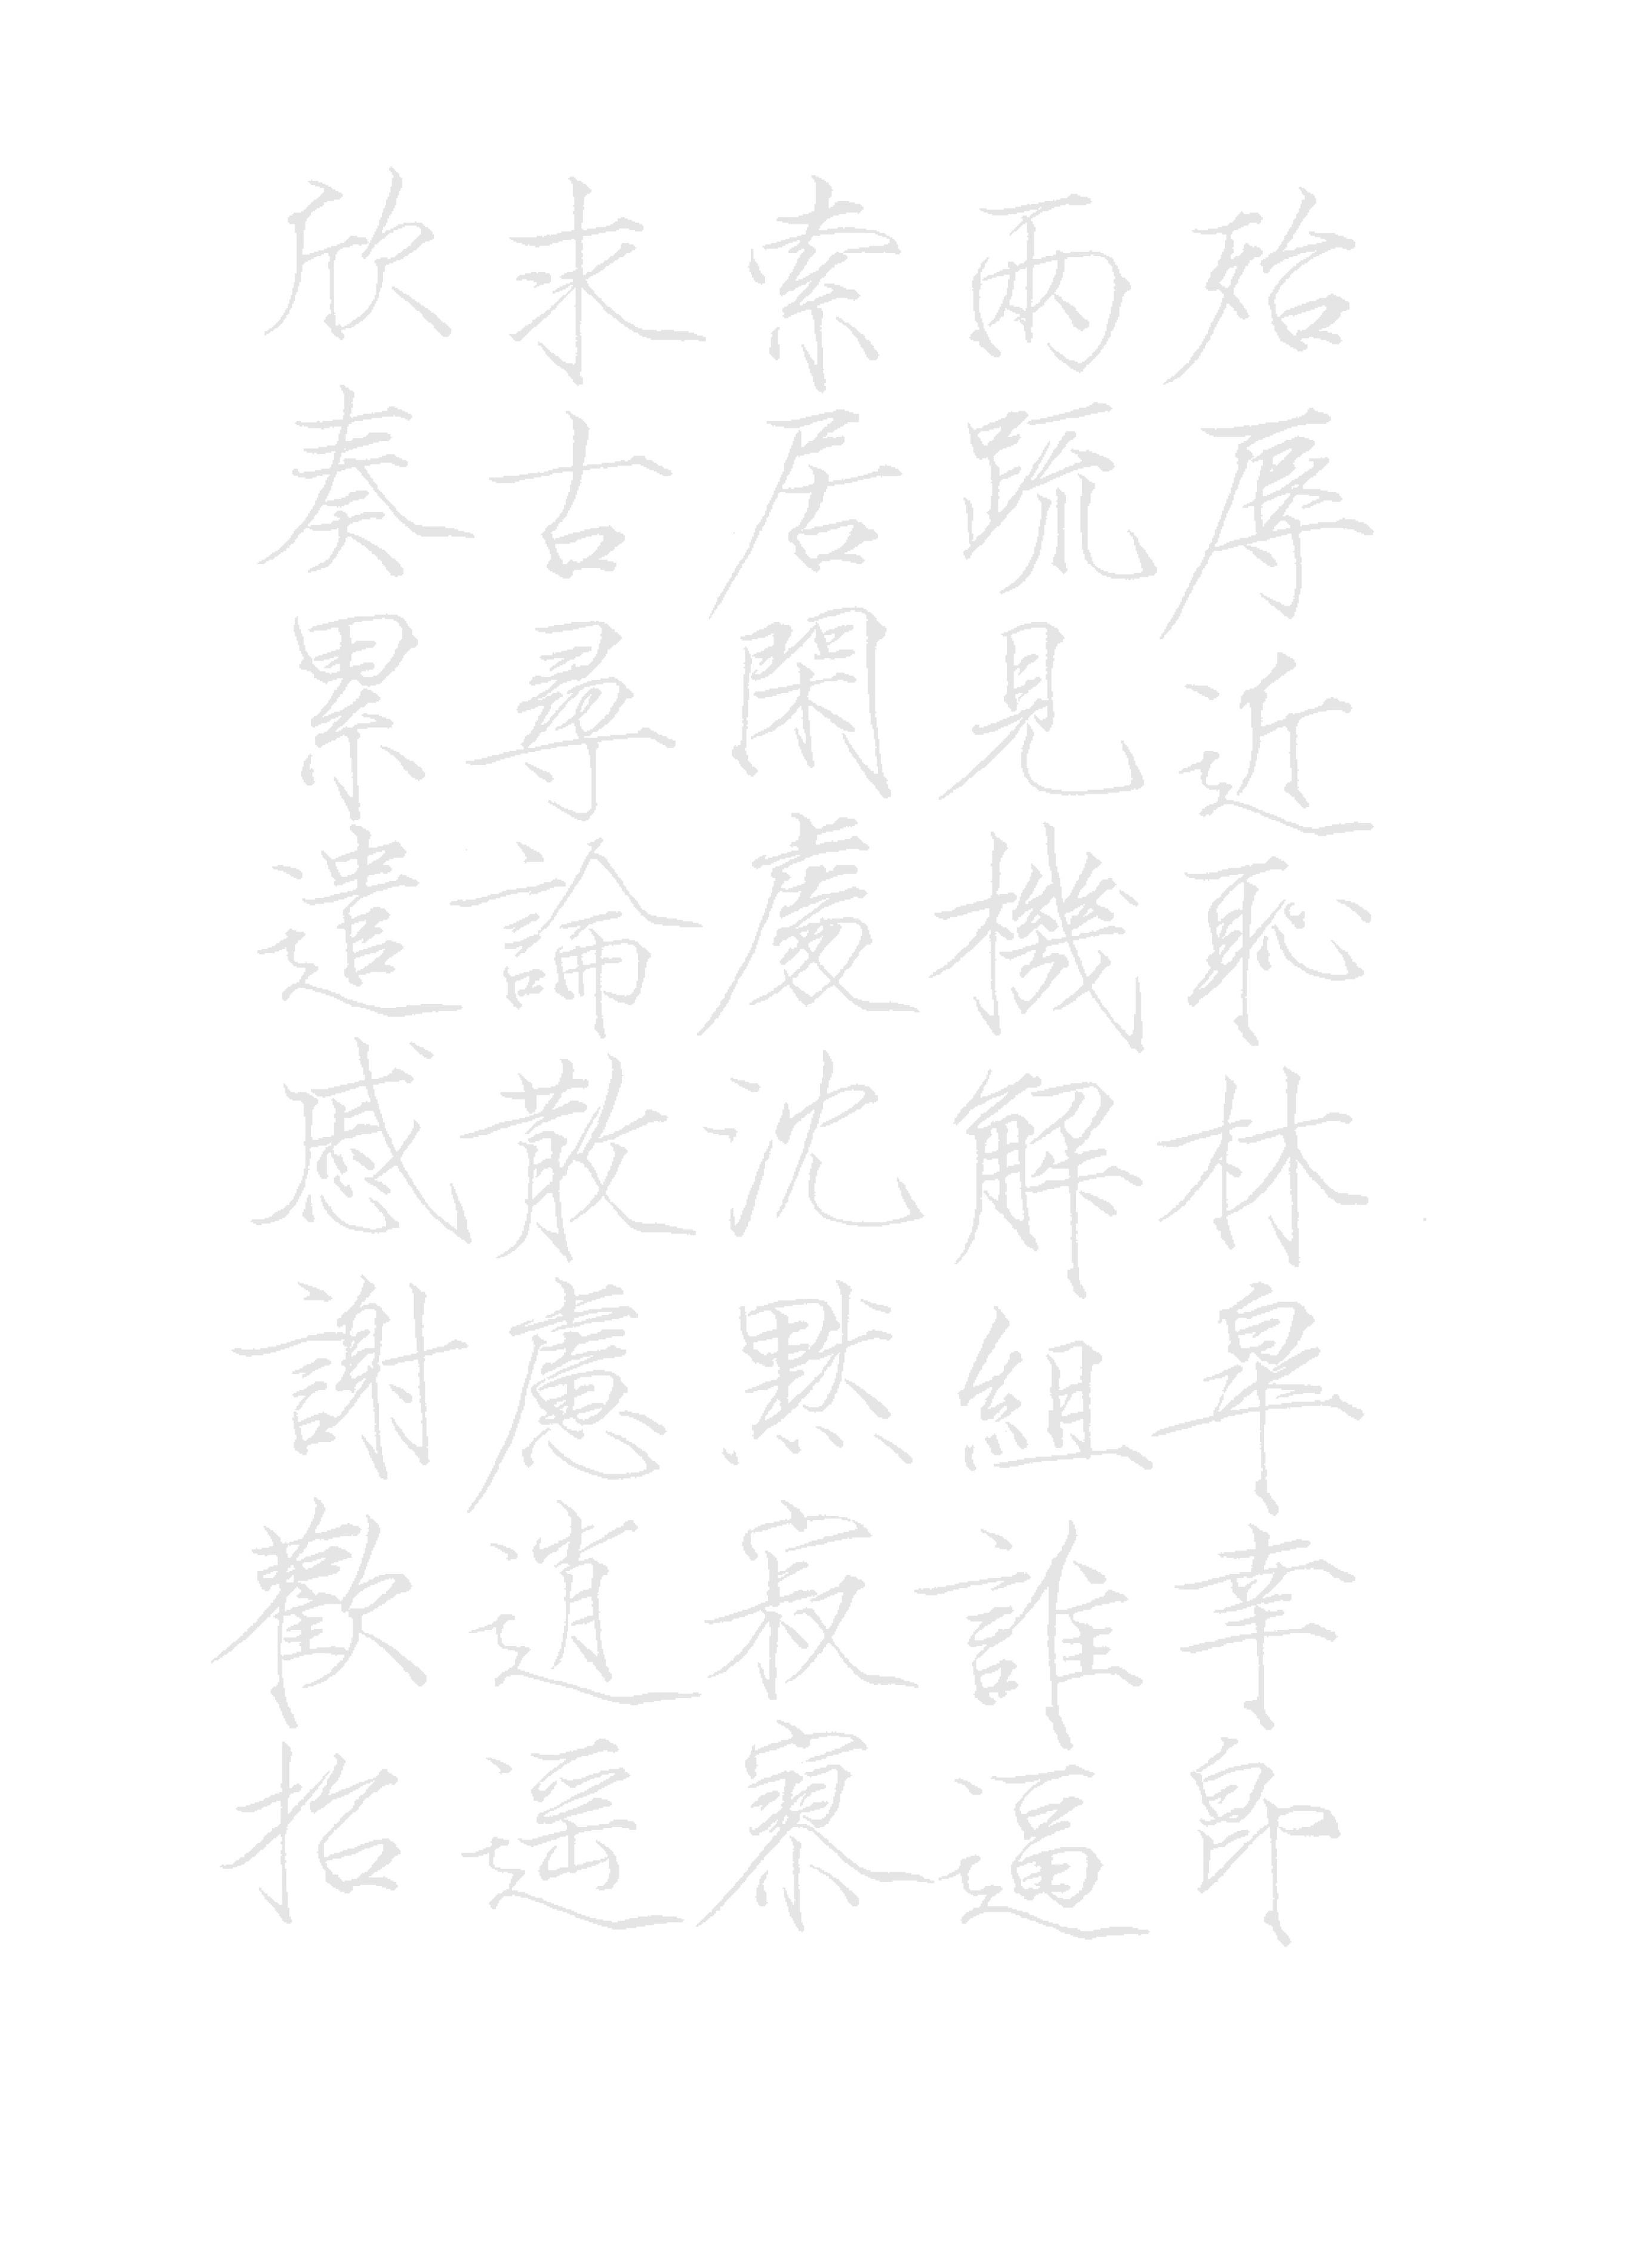 殆辱近恥林皋幸即
兩疏見機解組誰逼
索居閑處沈默寂寥
求古尋論散慮逍遥
欣奏累遣慼謝歡招